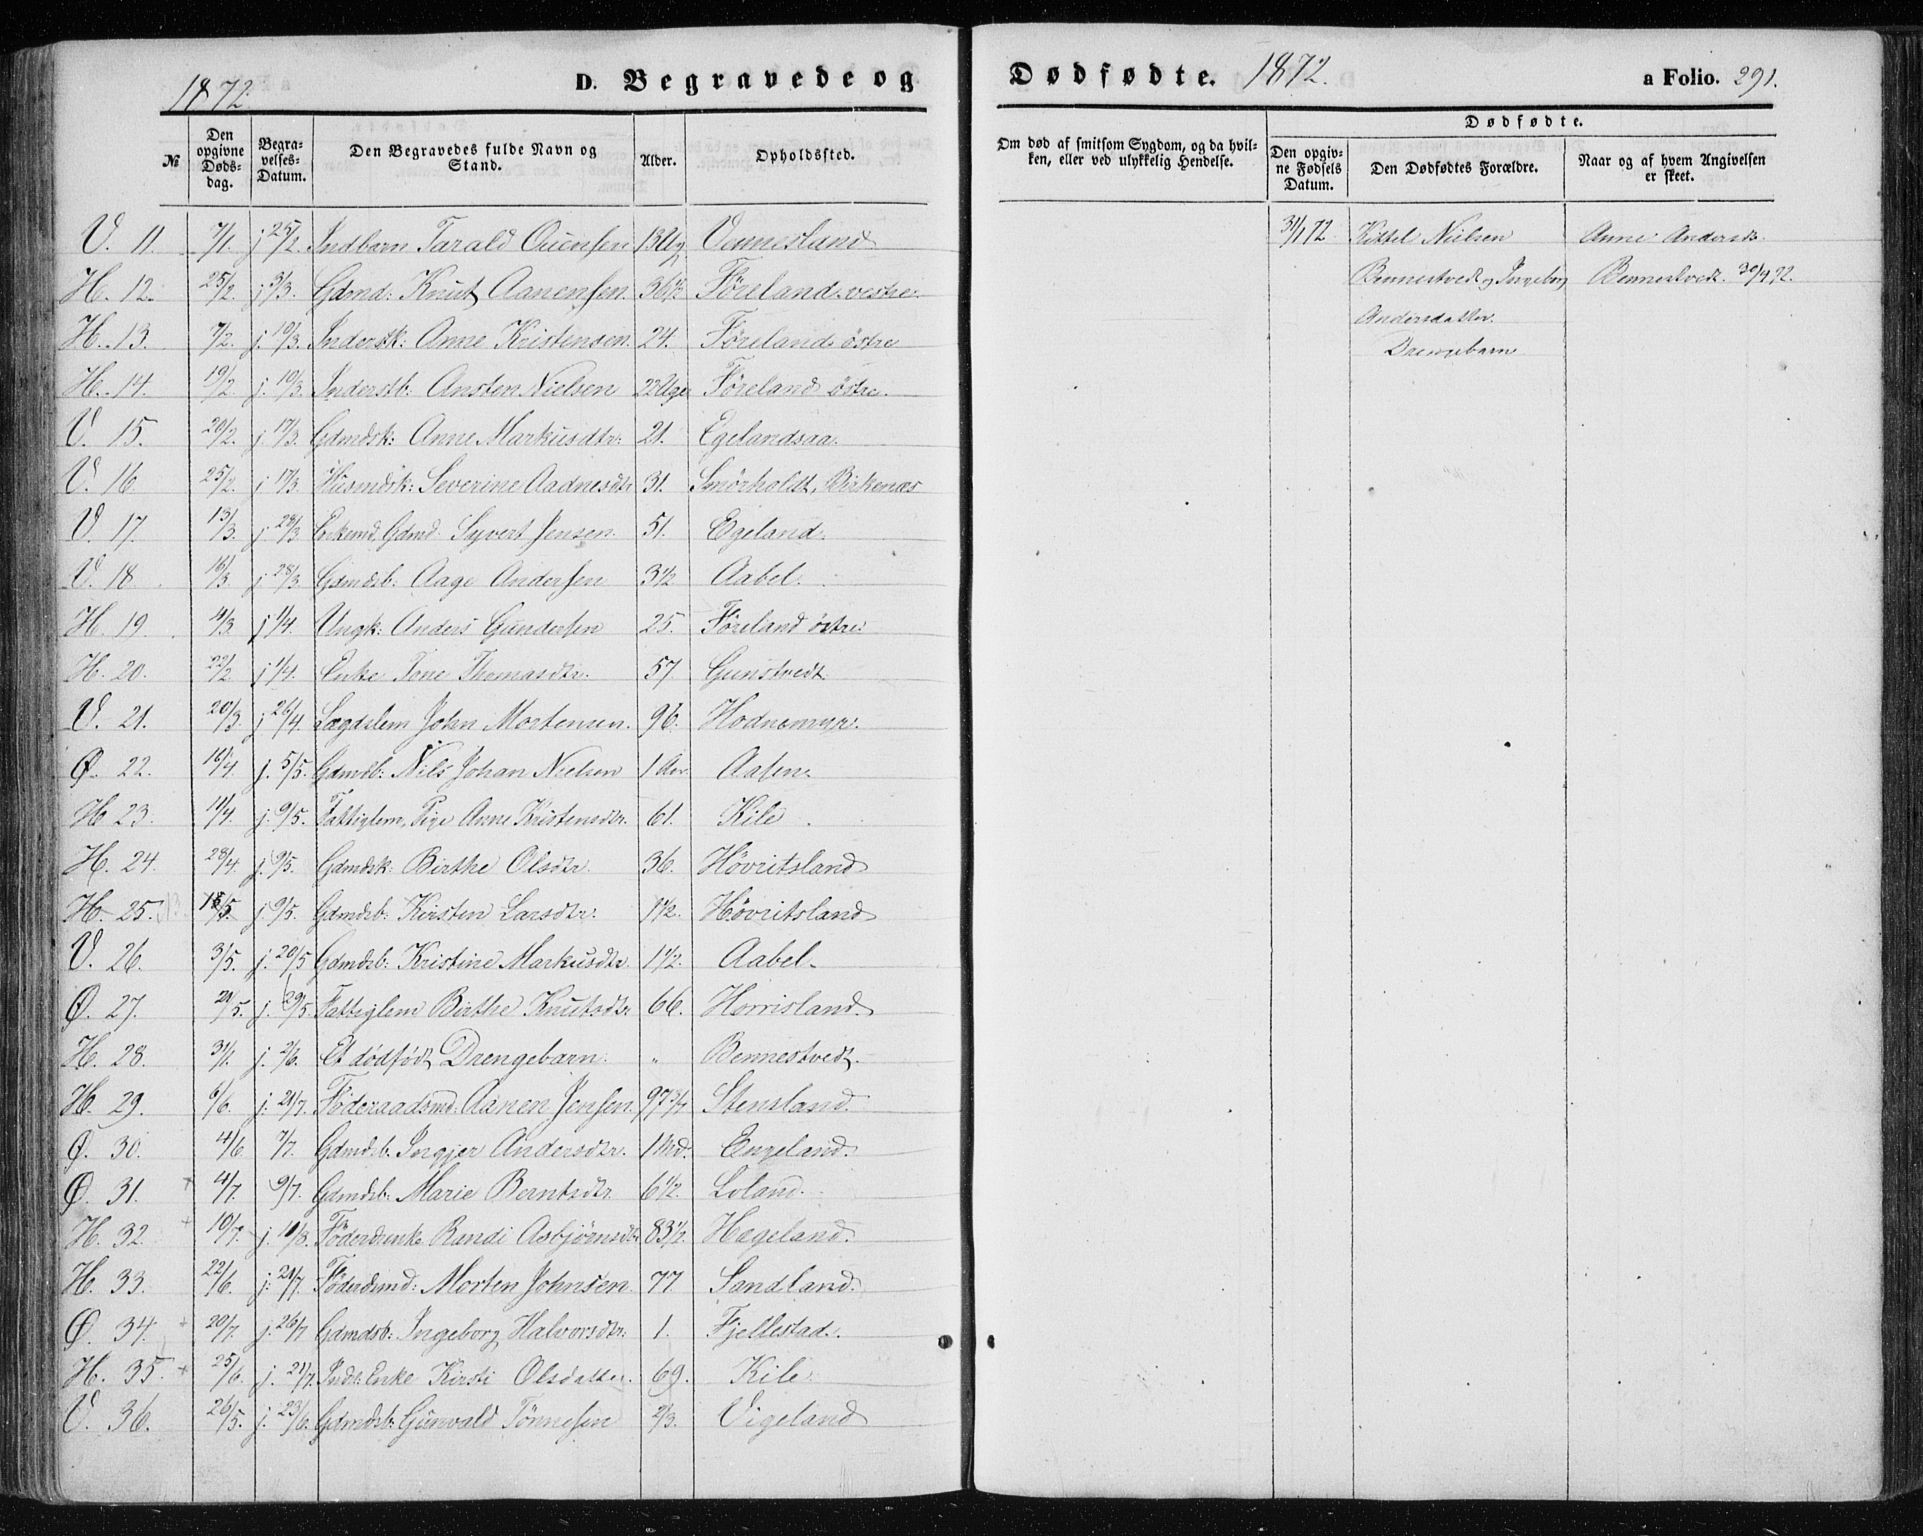 1872.
D. Begravede og
Dødfødte.
1872.
a Folio. 291.
№
Den opgivne Døds-dag.
Begra-velses-Datum.
Den Begravedes fulde Navn og Stand.
Alder.
Opholdssted.
Om død af smitsom Sygdom, og da hvil-ken, eller ved ulykkelig Hendelse.
Dødfødte.
Den opgiv-ne Fødsels Datum.
Den Dødfødtes Forældre.
Naar og af hvem Angivelsen er skeet.
V. 11. 7/1. j 25/2. Indbarn Tarald Ouensen 13 Ug Vennesland
H. 12. 25/2. j 3/3. Gdmd: Knut Aanensen. 36 1/2 Føreland vestre.
H. 13. 7/2. j. 10/3. Indersk: Anne Kristensen. 24. Føreland østre
H. 14. 19/2 j. 10/3. Inderstb: Ansten Nielsen 22 Uger Føreland østre.
V. 15. 20/2. j. 17/3. Gdmdsk: Anne Markusdtr: 21. Egelandsaa.
V. 16 25/2. j 17/3. Husmdsk: Severine Aadnesdtr 31. Smörholdt, Birkenæs
V. 17. 13/3. j 28/3. Enkemd. Gdmd. Syvert Jensen. 51. Egeland.
V. 18. 16/3 j 28/3. Gdmdsb: Aage Andersen 3 1/2 Aabel.
H. 19. 4/3. j 1/4. Ungk: Anders Gundersen 25. Føreland østre:
H. 20. 22/2. j 1/4. Enke Tone Thomasdtr. 57. Gunstvedt
V. 21. 20/3 j 26/4. Lægdslem John Mortensen. 96. Hodnemyr.
Ø. 22. 16/4. j. 5/5. Gdmdb: Nils Johan Nielsen 1 Aar. Aasen.
H 23. 11/4. j. 9/5. Fattiglem, Pige Anne Kristensdtr. 61. Kile
H. 24. 28/4 j. 9/5. Gdmdsk: Birthe Olsdtr. 36. Høvritsland
H. 25. /5. j 9/5. Gdmdsb: Kirsten Larsdtr. 1 1/2. Høvritsland
V. 26. 3/5. j. 20/5 Gdmdsb: Kristine Markusdtr. 1 1/2. Aabel.
Ø. 27. 21/5. j. 29/5. Fattiglem Birthe Knutsdtr. 66. Horrisland.
H. 28. 31/1. j. 2/6. Et dödfödt Drengebarn. " Bennestvedt.
H. 29. 6/6. j. 21/7. Föderaadsmd: Aanen Jensen. 97 3/4 Stensland.
Ø. 30. 4/6 7/7. Gdmdsb. Ingjer Andersdtr. 1 Md. Engeland.
Ø. 31. + 4/7. 9/7. Gdmdsb: Marie Berntsdtr 6 1/2. Loland.
H. 32. + 10/7. j. /8. Föderdsenke Randi Asbjörnsdtr 83 1/2. Hægeland.
H. 33. 22/6. j. 21/7. Föderdsmd: Morten Johnsen. 77. Sandland.
Ø. 34. + 20/7. j. 26/7 Gdmdsb: Ingeborg Halvorsdtr. 1. Fjellestad.
H. 35. + 25/6. j. 21/7. Indt: Enke Kirsti Olsdatter. 69. Kile.
V. 36. 26/5. j. 23/6. Gdmdsb: Gunvald Tönnesen 2/3. Vigeland
31/1 72. Kittel Nielsen Anne Andersdtr.
Bennestvedt og Ingeborg Bennestvedt. 30/4 72.
Andersdatter.
Drengebarn